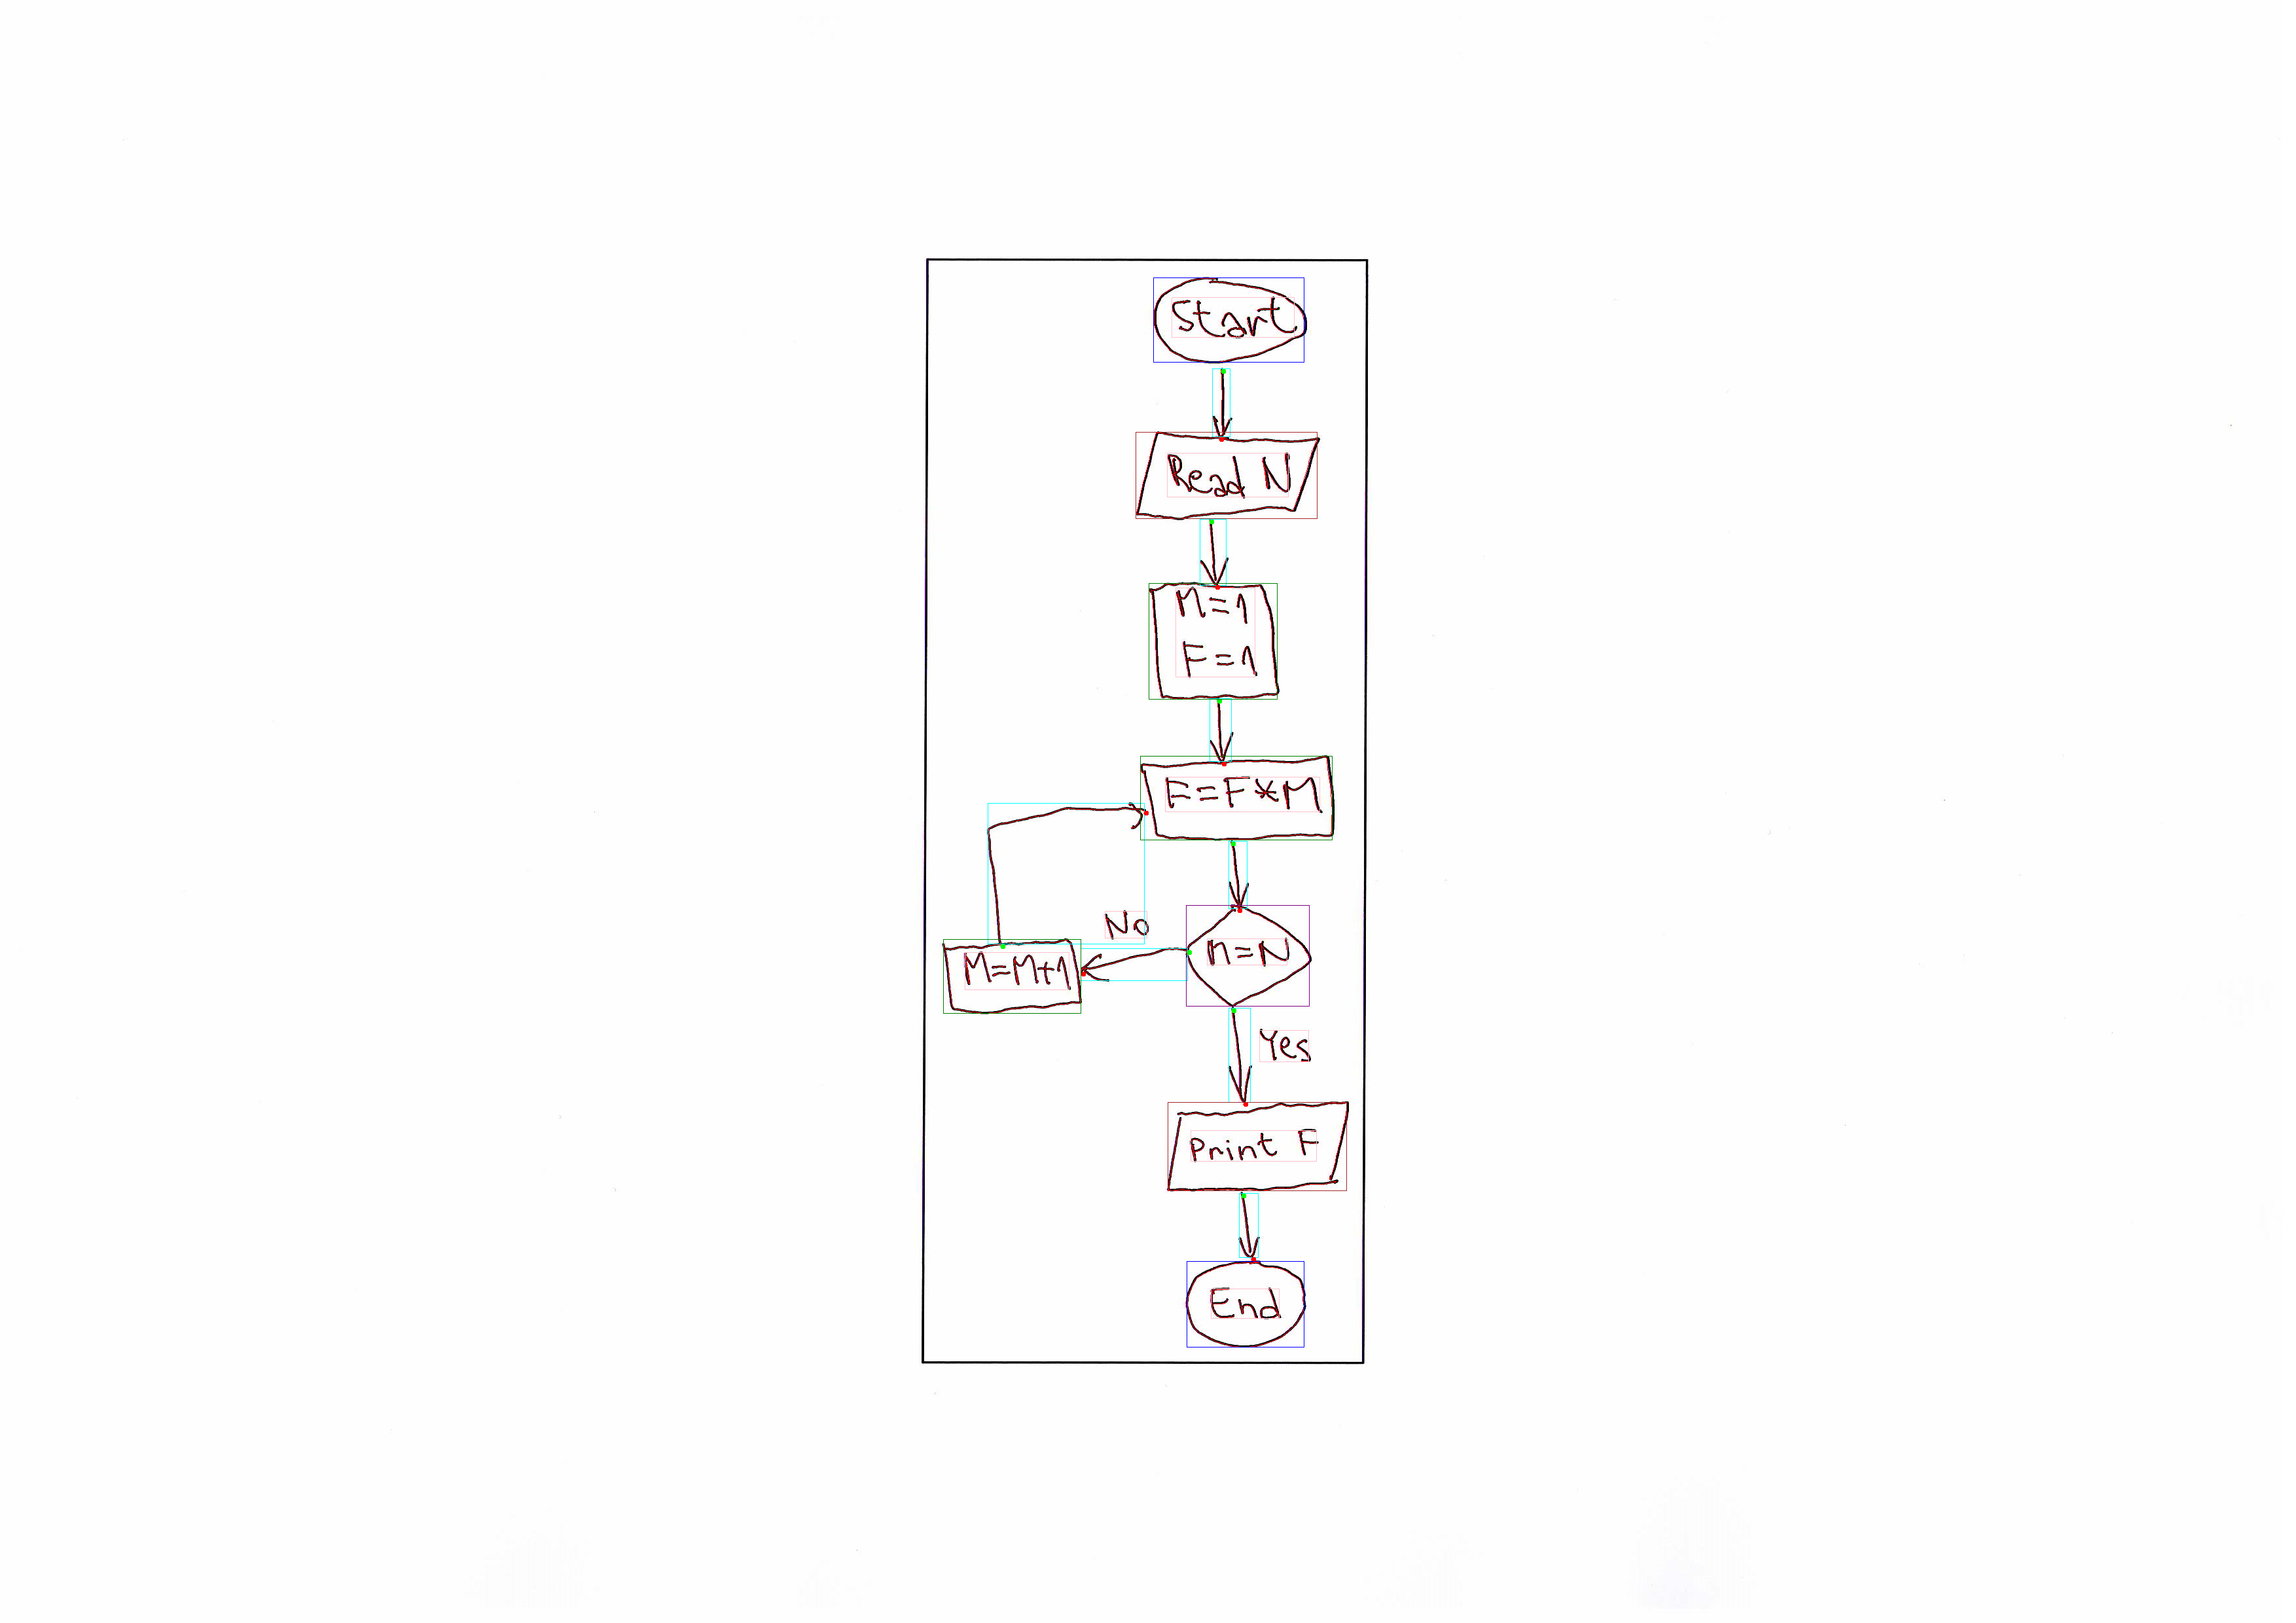 Start
Read N
M=1
F=1
F=F*M
No
M=N
M=M+1
Yes
Print F
End